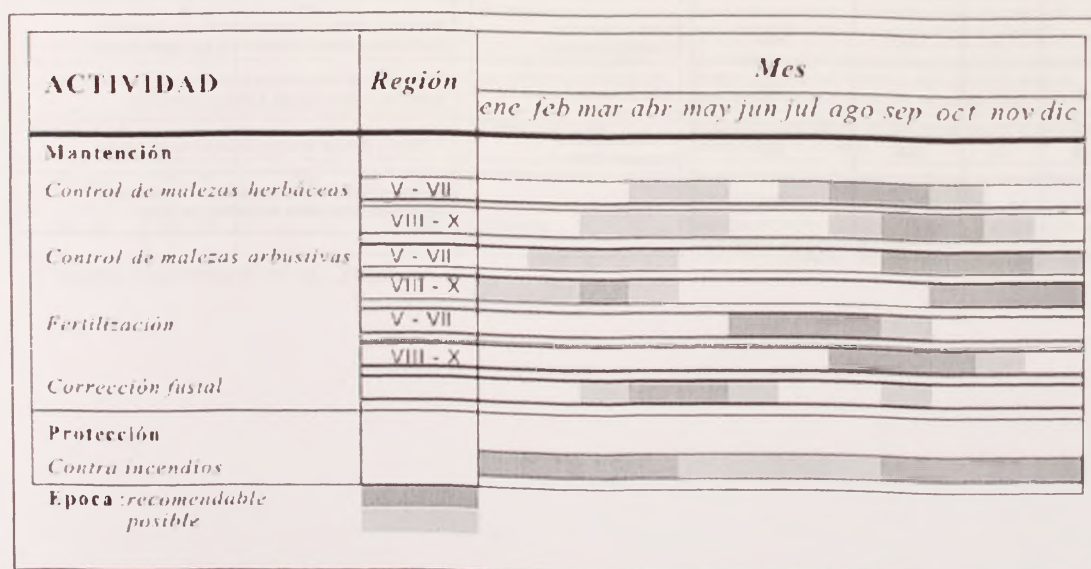 ACTIVIDAD Región Mes
ene feb mar abr may jun jul ago sep oct nov dic
Mantención
Control de malezas herbáceas V - VII
VIII - X
Control de malezas arbustivas V - VII
VIII - X
Fertilización V - VII
VIII - X
Corrección fustal
Protección
Contra incendios
Epoca :recomendable
posible